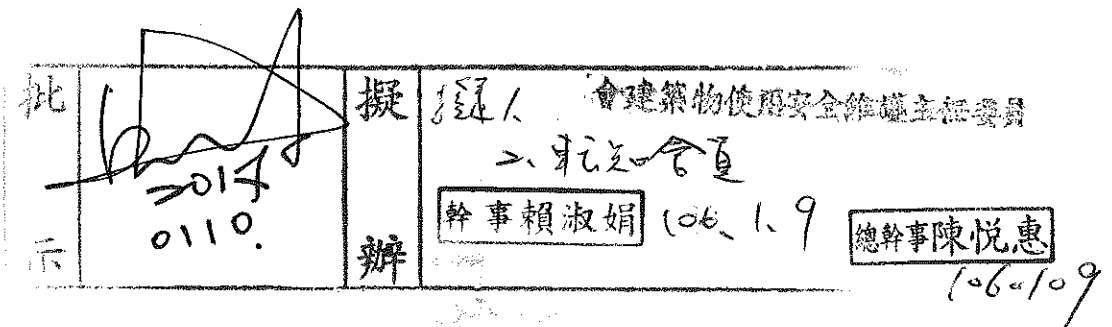 批示
2017
0110.
擬辦
會建築物使用安全維護主任委員
二、轉知會員
幹事賴淑娟 106、1、9
總幹事陳悦惠
106.109